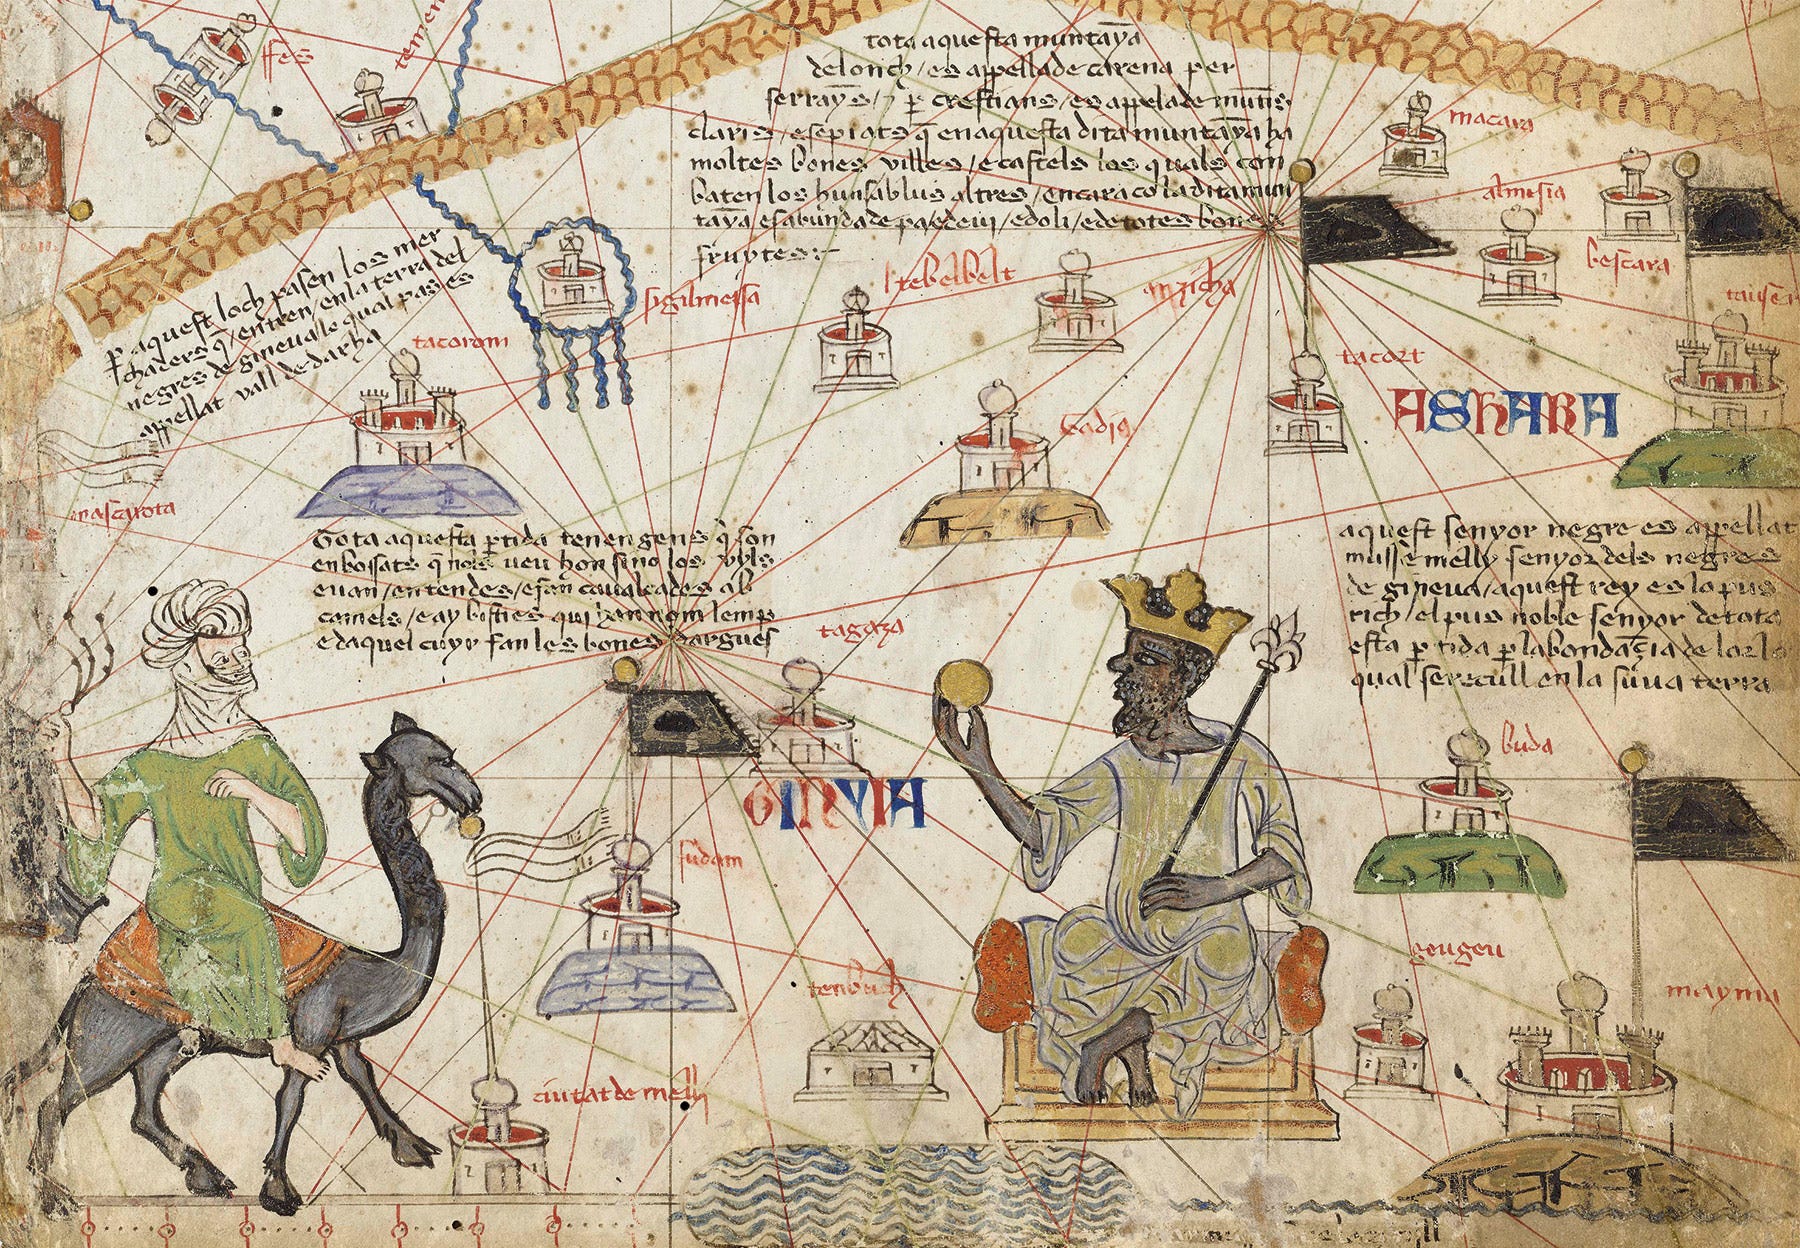 ffes
tota aquesta muntaya
de lonch / es appellade carena per
serrayns / ⁊ per crestians / es appelade muntis
claris / e sepiats q̄ en aquesta dita muntaya ha
moltes bones villes / e castels los quals con
baten los huns ab lus altres / encara co la dita mun
taya es abundade pa e de vi / e doli / e de totes bones
fruytes:
macara
almusia
bescara
p aquest loch pasen los mer
chaders q̄ / entren / en la terra del
negres de gineua le qual pas es
appellat vall de darha
sigilmessa
tebelbelt
anzicha
tacort
tacorom
ASHARA
mascarota
Gadis
Tota aquesta ptida tenen gens q̄ son
enbossats q̄ nols veu hon sino los uyls
e van / en tendes / e fan caualcades ab
camels / e ay bisties qui han nom lemp
e daquel cuyr fan les bones dargues
aquest senyor negre es appellat
musse melly senyor dels negres
de gineua / aquest rey es lo pus
rich / el pus noble senyor de tota
esta ptida p labondāçia de lor lo
qual se recull en la sua terra
tagaza
buda
GINYIA
sudam
tenbuch
geugeu
mayma
ciutat de melly